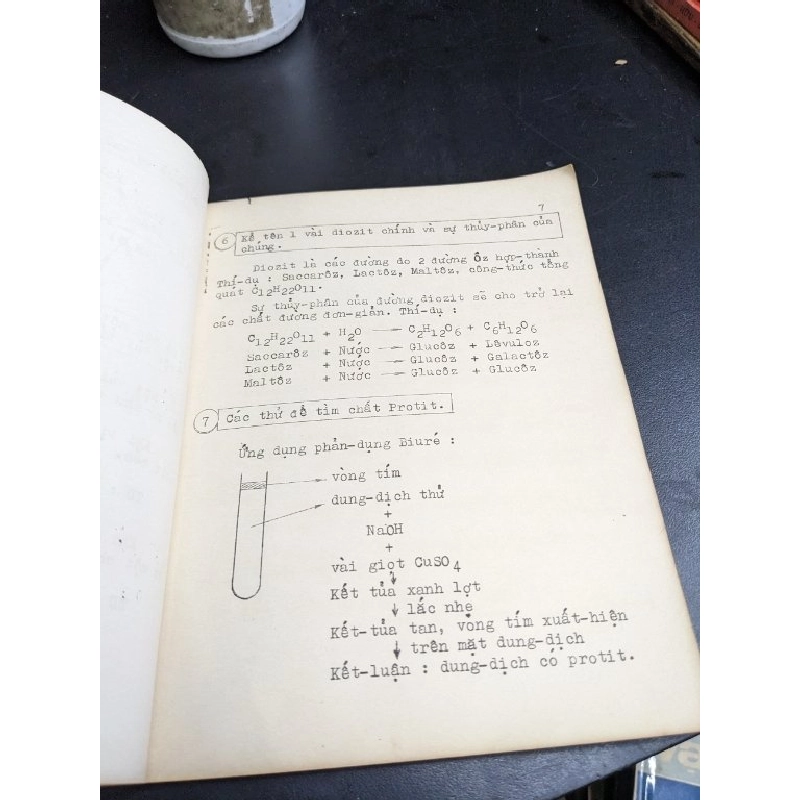 7
6 Kể tên 1 vài diozit chính và sự thủy-phân của
chúng.
Diozit là các đường do 2 đường Ôz hợp-thành
Thí-dụ : Saccarôz, Lactôz, Maltôz, công-thức tổng
quát C12H22O11.
Sự thủy-phân của đường diozit sẽ cho trở lại
các chất đường đơn-giản. Thí-dụ :
C12H22O11 + H2O → C2H12O6 + C6H12O6
Saccarôz + Nước → Glucôz + Lêvuloz
Lactôz + Nước → Glucôz + Galactôz
Maltôz + Nước → Glucôz + Glucôz
7 Các thử để tìm chất Protit.
Ứng dụng phản-dụng Biuré :
vòng tím
dung-dịch thử
+
NaOH
+
vài giọt CuSO4
↓
Kết tủa xanh lợt
↓ lắc nhẹ
Kết-tủa tan, vòng tím xuất-hiện
↓ trên mặt dung-dịch
Kết-luận : dung-dịch có protit.